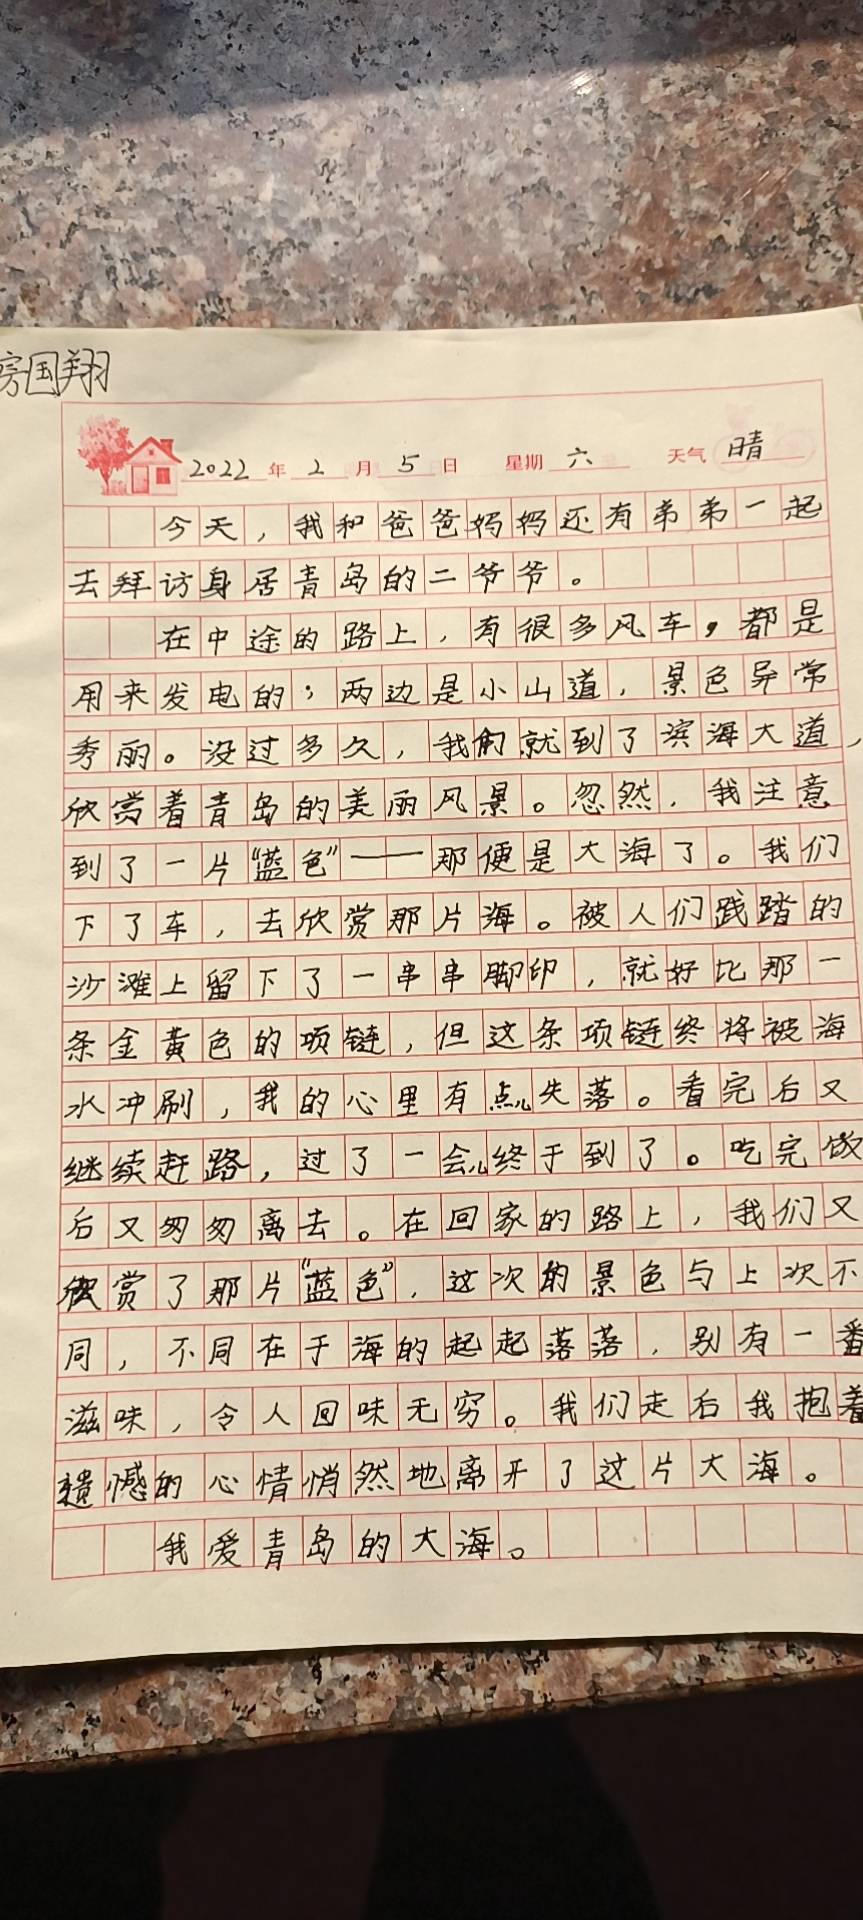 房国翔
2022年2月5日 星期六 天气晴
今天，我和爸爸妈妈还有弟弟一起
去拜访身居青岛的二爷爷。
在中途的路上，有很多风车，都是
用来发电的；两边是小山道，景色异常
秀丽。没过多久，我们就到了滨海大道，
欣赏着青岛的美丽风景。忽然，我注意
到了一片“蓝色”——那便是大海了。我们
下了车，去欣赏那片海。被人们践踏的
沙滩上留下了一串串脚印，就好比那一
条金黄色的项链，但这条项链终将被海
水冲刷，我的心里有点儿失落。看完后又
继续赶路，过了一会儿终于到了。吃完饭
后又匆匆离去。在回家的路上，我们又
欣赏了那片“蓝色”，这次的景色与上次不
同，不同在于海的起起落落，别有一番
滋味，令人回味无穷。我们走后我抱着
遗憾的心情悄然地离开了这片大海。
我爱青岛的大海。